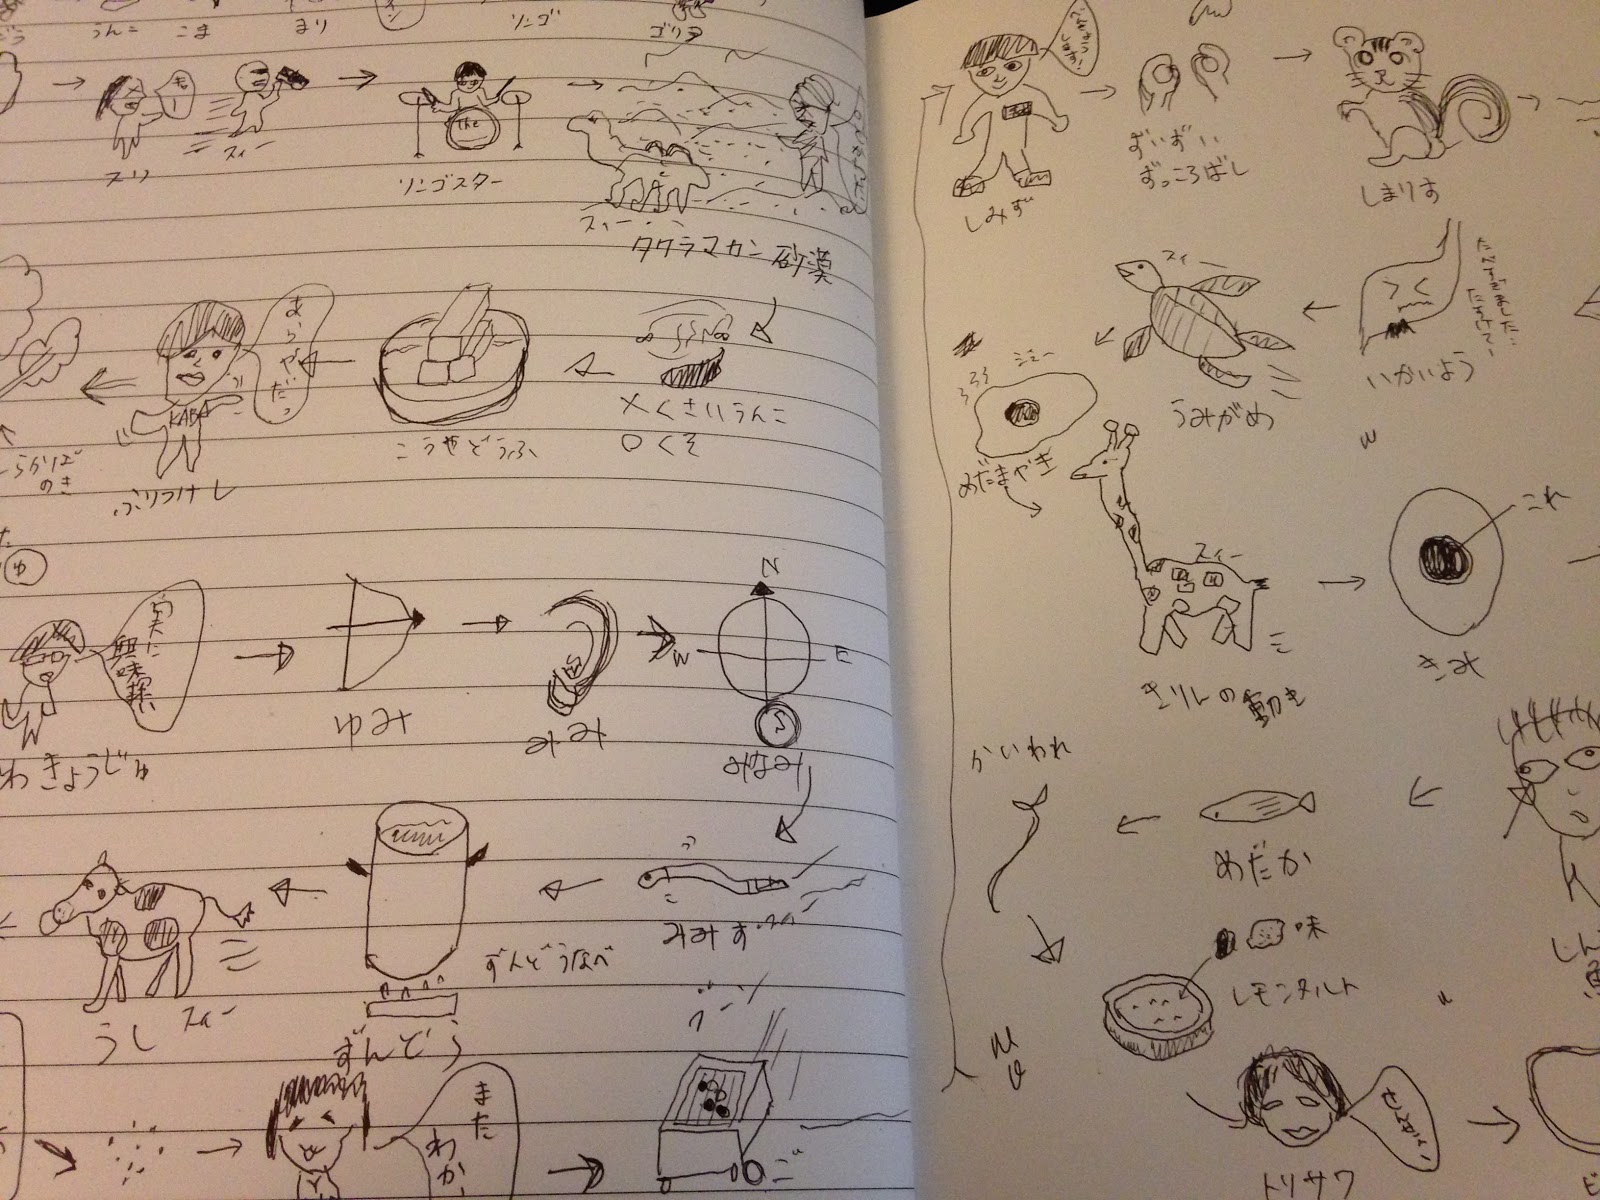 うんこ
こま
まり
リンゴ
ゴリラ
スリ
スィー
The
リンゴスター
スィー
タクラマカン砂漠
メくさいうんこ
ロくそ
こうやどうふ
あらやだっ
KABA
ふりつけし
らかば
のき
ゆ
実に
興味深い
わきょうじゅ
ゆみ
みみ
N
W
E
S
みなみ
みみず
ずんどうなべ
ずんどう
うし
スィー
また
わか
ゴ
しみず
ずいずい
ずっころばし
しまりす
いかいよう
スィー
うみがめ
ジュー
めだまやき
スィー
きりんの動き
これ
きみ
めだか
かいわれ
味
レモンタルト
トリサワ